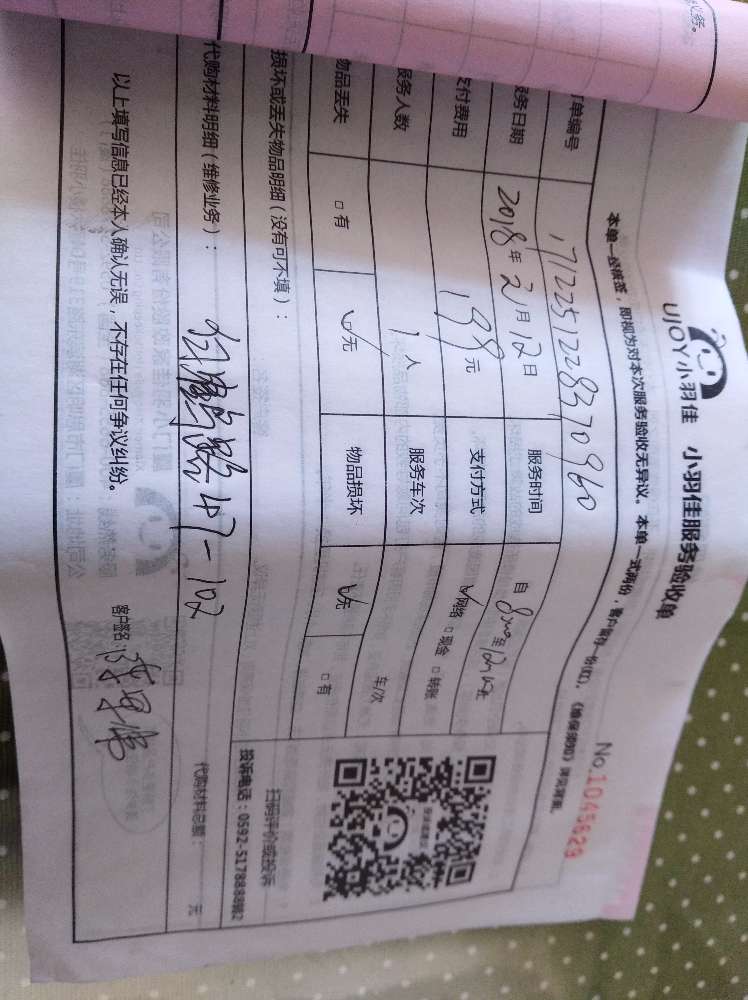 UJOY小羽佳 小羽佳服务验收单
No.1045629
本单一经核签，即视为对本次服务验收无异议。本单一式两份，客户留存一份(红)，《维保须知》详见背面。
订单编号 1712251228370960
服务日期 2018年2月12日 服务时间 自8:00至12:00止
支付费用 199元 支付方式 ☑网络 □现金 □转账
服务人数 1人 服务车次 车/次
物品丢失 □有 ☑无 物品损坏 ☑无 □有
损坏或丢失物品明细（没有可不填）：
扫码评价或投诉
投诉电话：0592-5178888转2
代购材料明细（维修业务）： 路47-102
代购材料总额： 元
以上填写信息已经本人确认无误，不存在任何争议纠纷。 客户签名：